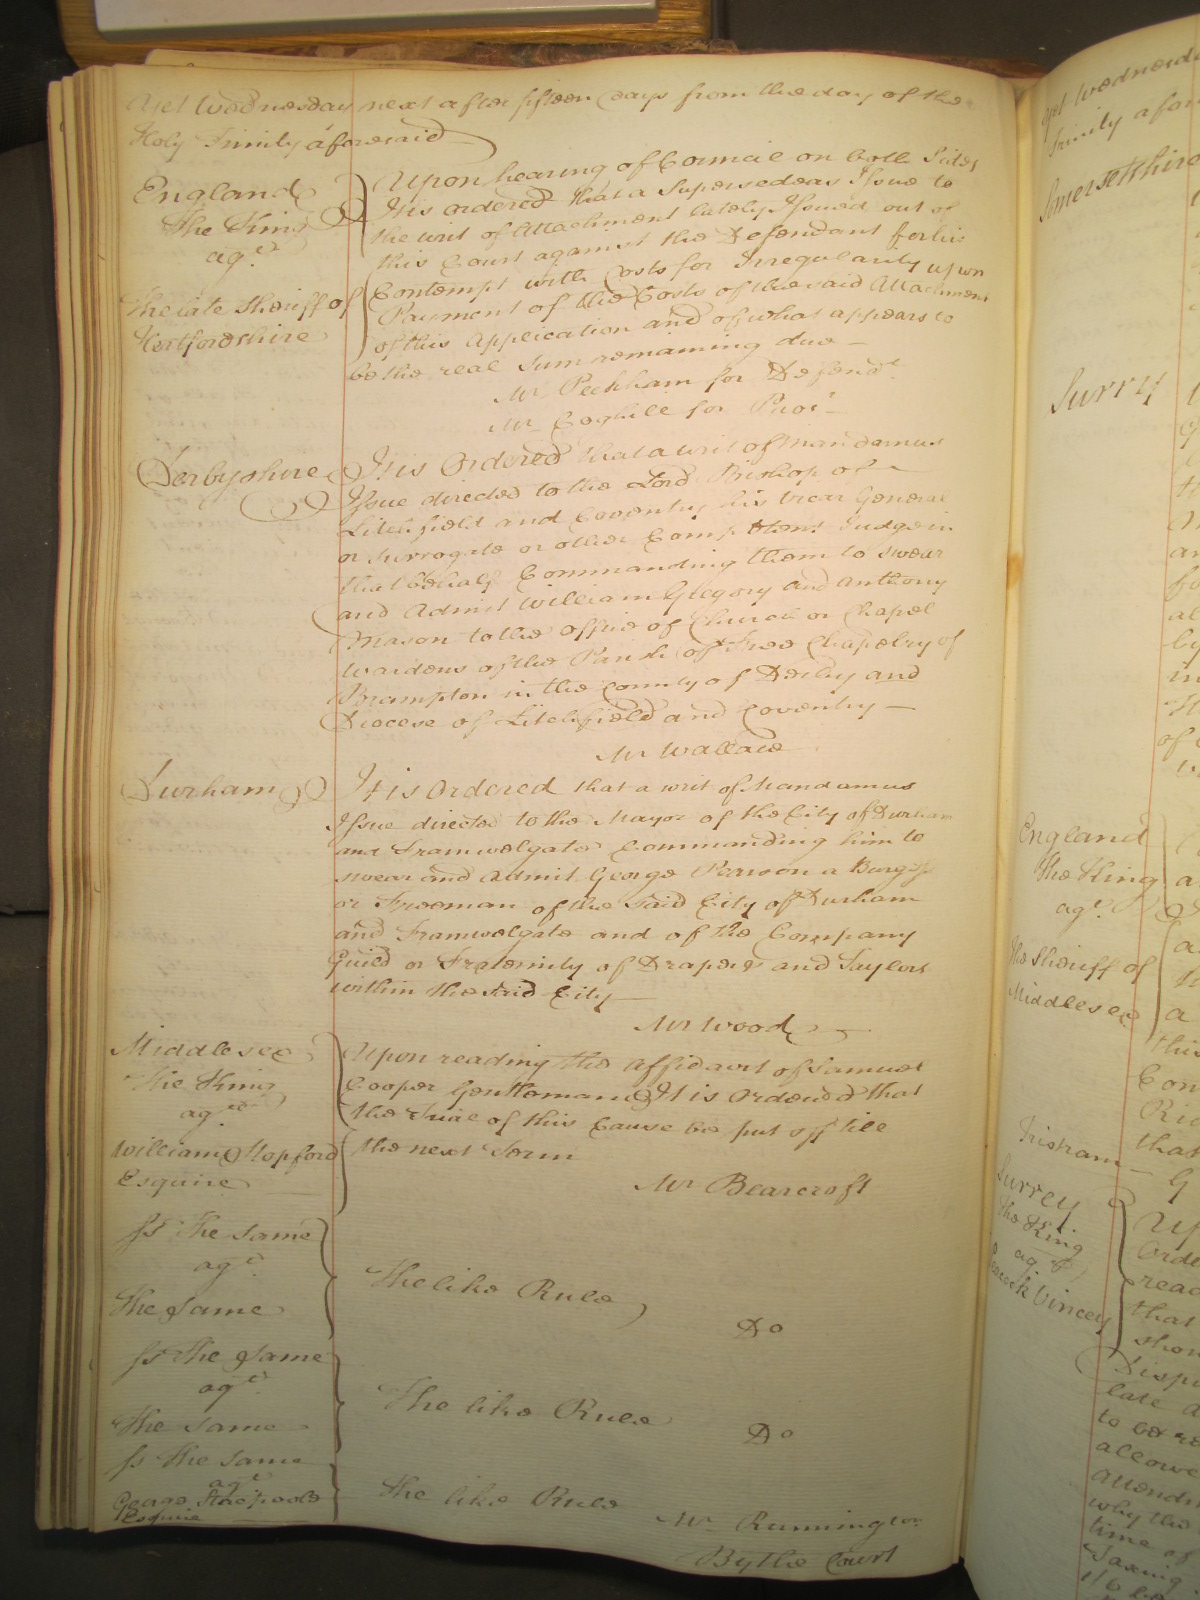 Yet Wednesday next after fifteen days from the day of the
Holy Trinity aforesaid
England
The King
agt.
The late Sheriff of
Hertfordshire
Upon hearing of Council on both Sides
It is ordered that a Supersedeas Issue to
the writ of Attachment lately Issued out of
this Court against the Defendant for his
Contempt with Costs for Irregularity upon
Payment of the Costs of the said Attachment
of this Application and of what appears to
be the real Sum remaining due
Mr Peckham for Defendt.
Mr Coghill for Prosr
Derbyshire
It is Ordered that a writ of Mandamus
Issue directed to the Lord Bishop of
Litchfield and Coventry his Vicar General
or Surrogate or other Competent Judge in
that behalf Commanding them to swear
and Admit William Gregory and Anthony
Mason to the office of Church or Chapel
Wardens of the Parish or Free Chapelry of
Brampton in the County of Derby and
Diocese of Litchfield and Coventry
Mr Wallace
Durham
It is Ordered that a writ of Mandamus
Issue directed to the Mayor of the City of Durham
and Framwelgate Commanding him to
swear and Admit George Pearson a Burgess
or Freeman of the said City of Durham
and Framwelgate and of the Company
Guild or Fraternity of Drapers and Taylors
within the said City
Mr Wood
Middlesex
The King
agt.
William Stopford
Esquire
Upon reading the Affidavit of Samuel
Cooper Gentleman It is Ordered that
the Trial of this Cause be put off till
the next Term
Mr Bearcroft
Ss The Same
agt.
The Same
The like Rule
Do
Ss The Same
agt.
The Same
The like Rule
Do
Ss The Same
agt
George Stacpoole
Esquire
The like Rule
Mr. Runnington
By the Court
Yet Wednesday
Trinity afor
Somersetshire
Surry
England
The King
agt.
The Sheriff of
Middlesex
Surrey
The King
agt